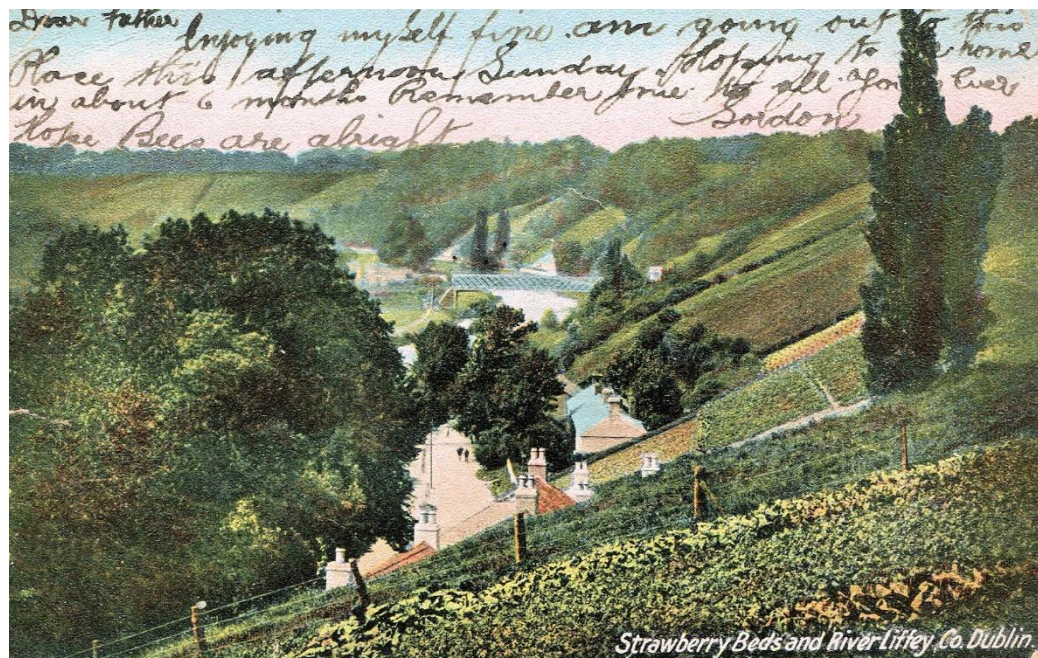 Dear Father
Enjoying myself fine. am going out to this
Place this afternoon Sunday Hoping to be home
in about 6 months Remember me to all you Ever
Gordon
Hope Bees are alright
Strawberry Beds and River Liffey, Co. Dublin.